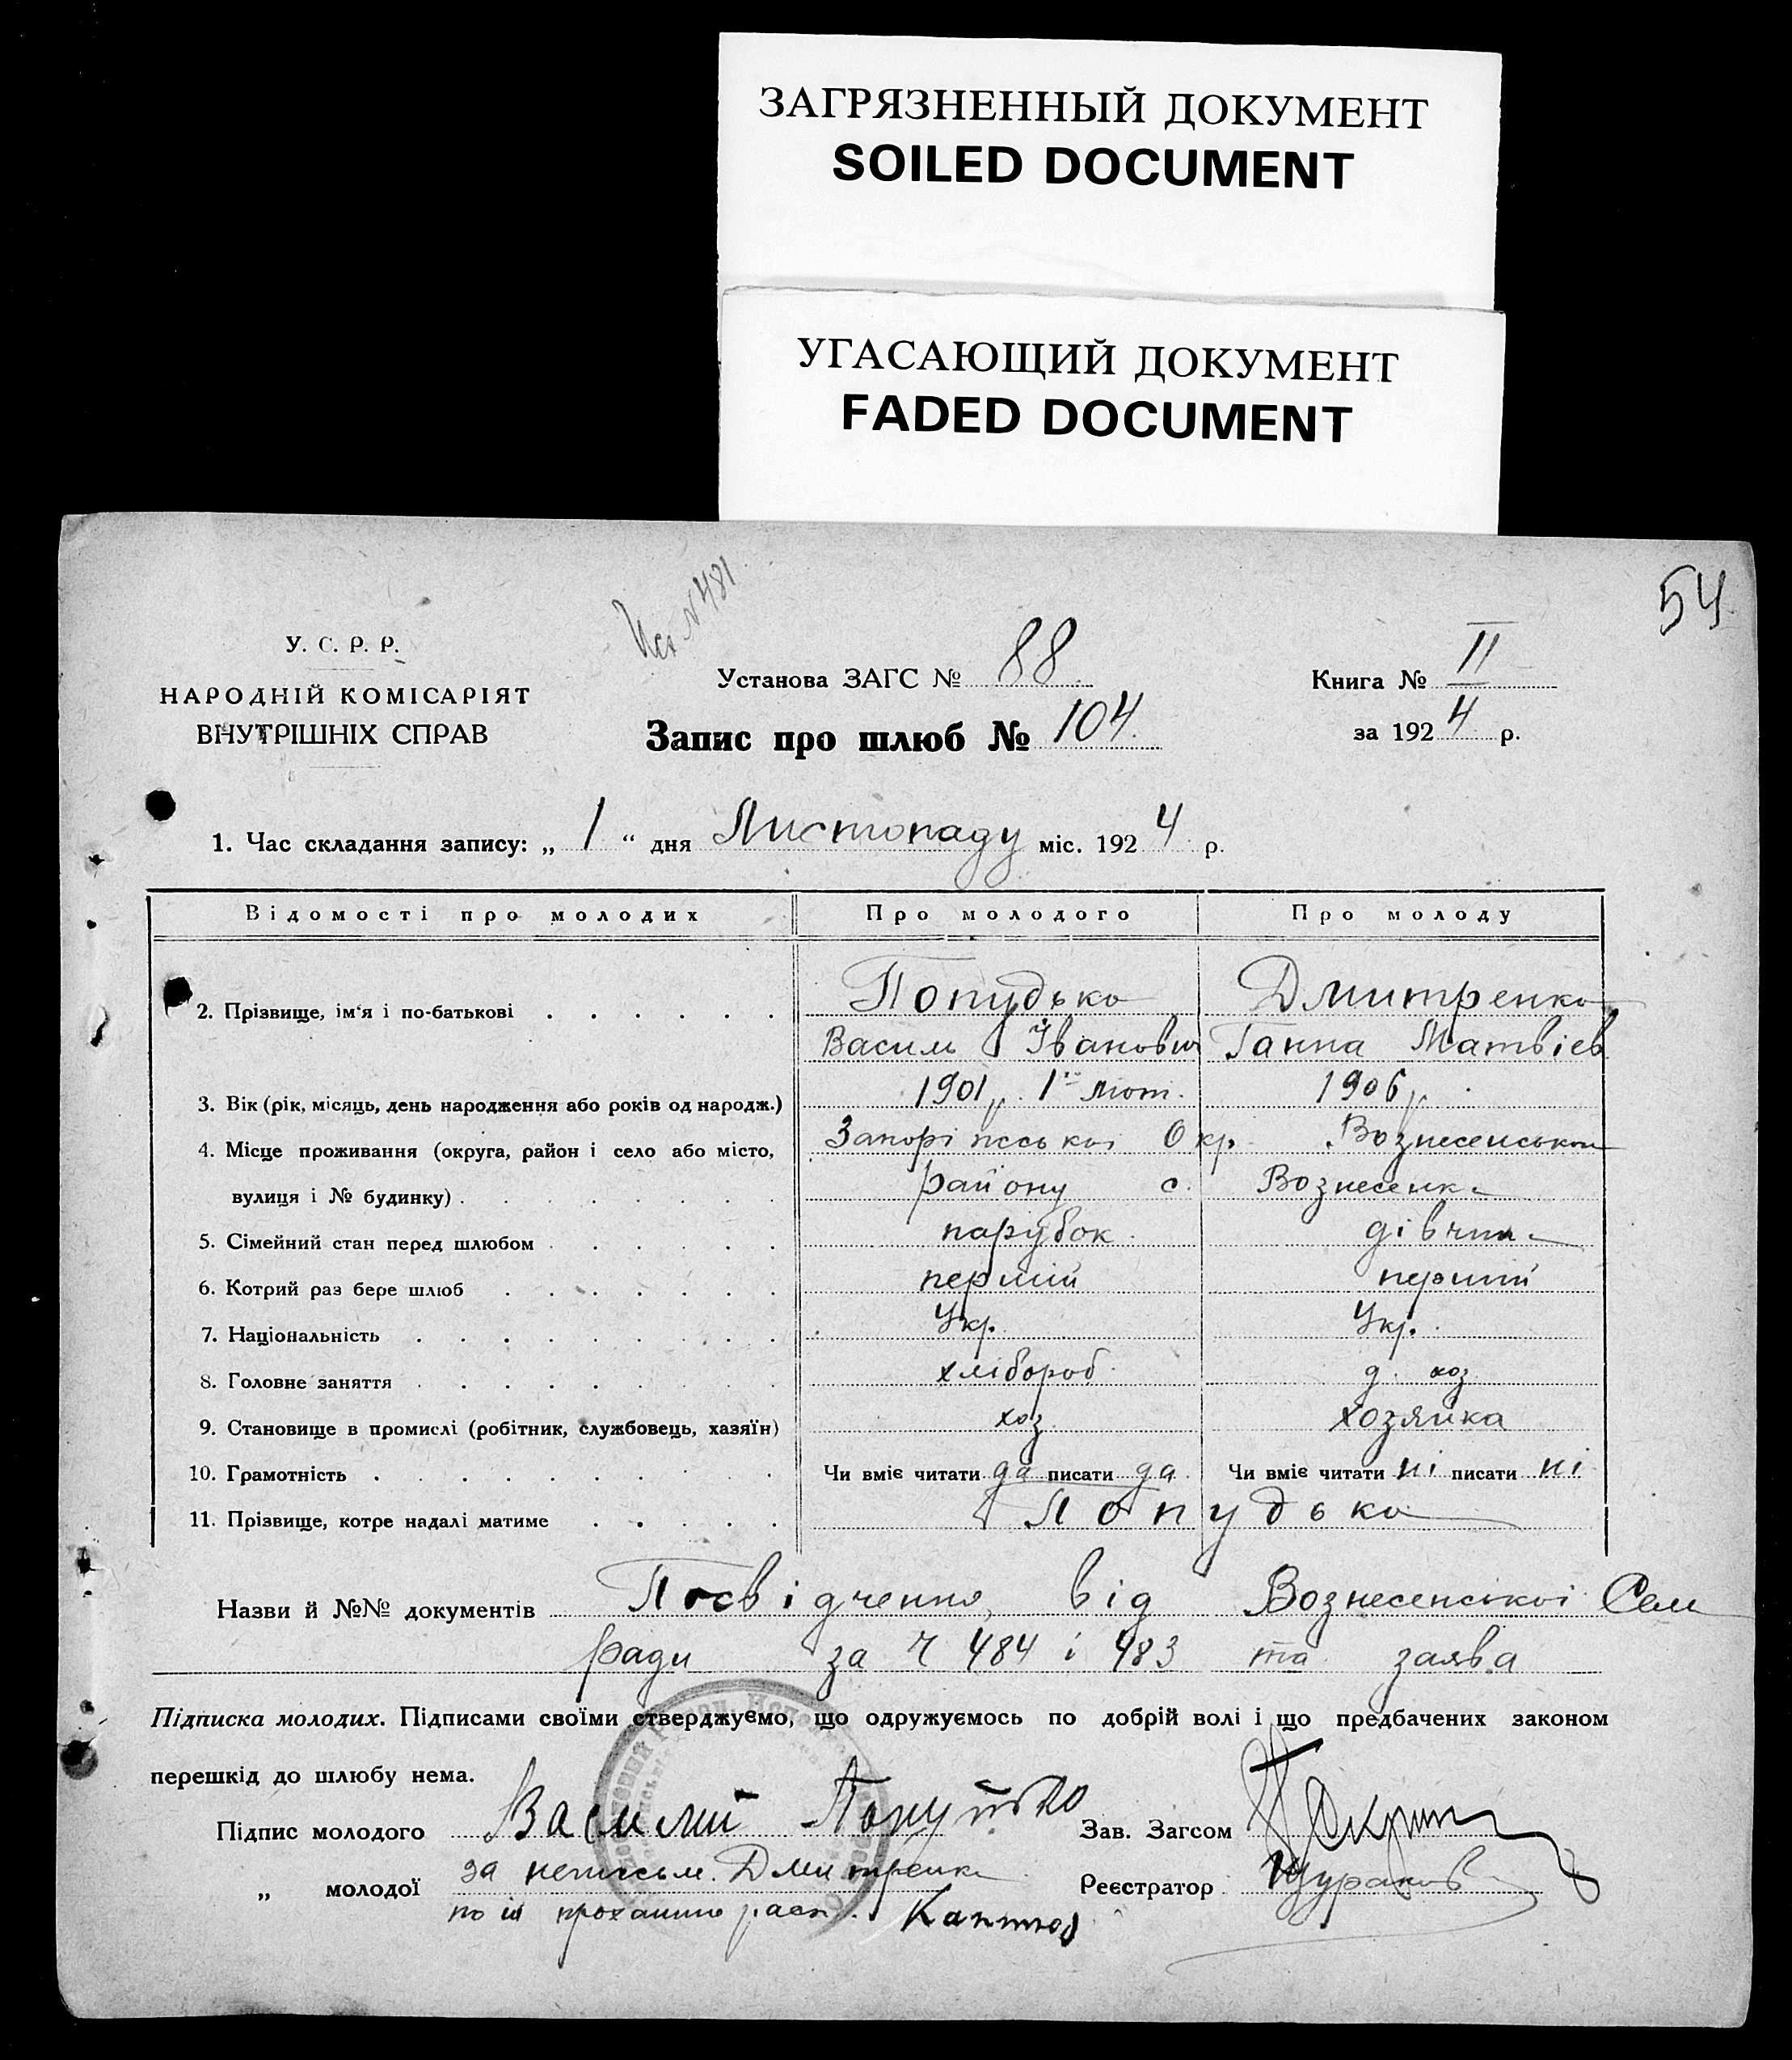 ЗАГРЯЗНЕННЫЙ ДОКУМЕНТ
SOILED DOCUMENT
УГАСАЮЩИЙ ДОКУМЕНТ
FADED DOCUMENT
54
N 481
У. С. Р. Р.
НАРОДНІЙ КОМІСАРІЯТ
ВНУТРІШНІХ СПРАВ
Установа ЗАГС № 88
Запис про шлюб № 104
Книга № II
за 1924 р.
1. Час складання запису: „ 1 “ дня Листопаду міс. 1924 р.
Відомості про молодих Про молодого Про молоду
2. Прізвище, ім'я і по-батькові Попудько Дмитренко
Василь Іванович Ганна Матвіев
3. Вік (рік, місяць, день народження або років од народж.) 1901 р. 1го лют. 1906 р.
4. Місце проживання (округа, район і село або місто, Запоріжської Окр. Вознесенського
вулиця і № будинку) району с. Вознесенка
5. Сімейний стан перед шлюбом парубок дівчина
6. Котрий раз бере шлюб перший перший
7. Національність Укр. Укр.
8. Головне заняття хлібороб д. хоз
9. Становище в промислі (робітник, службовець, хазяїн) хоз хозяйка
10. Грамотність Чи вміє читати да писати да Чи вміє читати ні писати ні
11. Прізвище, котре надалі матиме Попудько
Назви й №№ документів Посвідчення від Вознесенської Сель
ради за Ч 484 і 483 та заява
Підписка молодих. Підписами своїми стверджуємо, що одружуємось по добрій волі і що предбачених законом
перешкід до шлюбу нема.
Підпис молодого Василий Попудько Зав. Загсом
„ молодої за неписьм. Дмитренко Реєстратор
по її проханню расп.